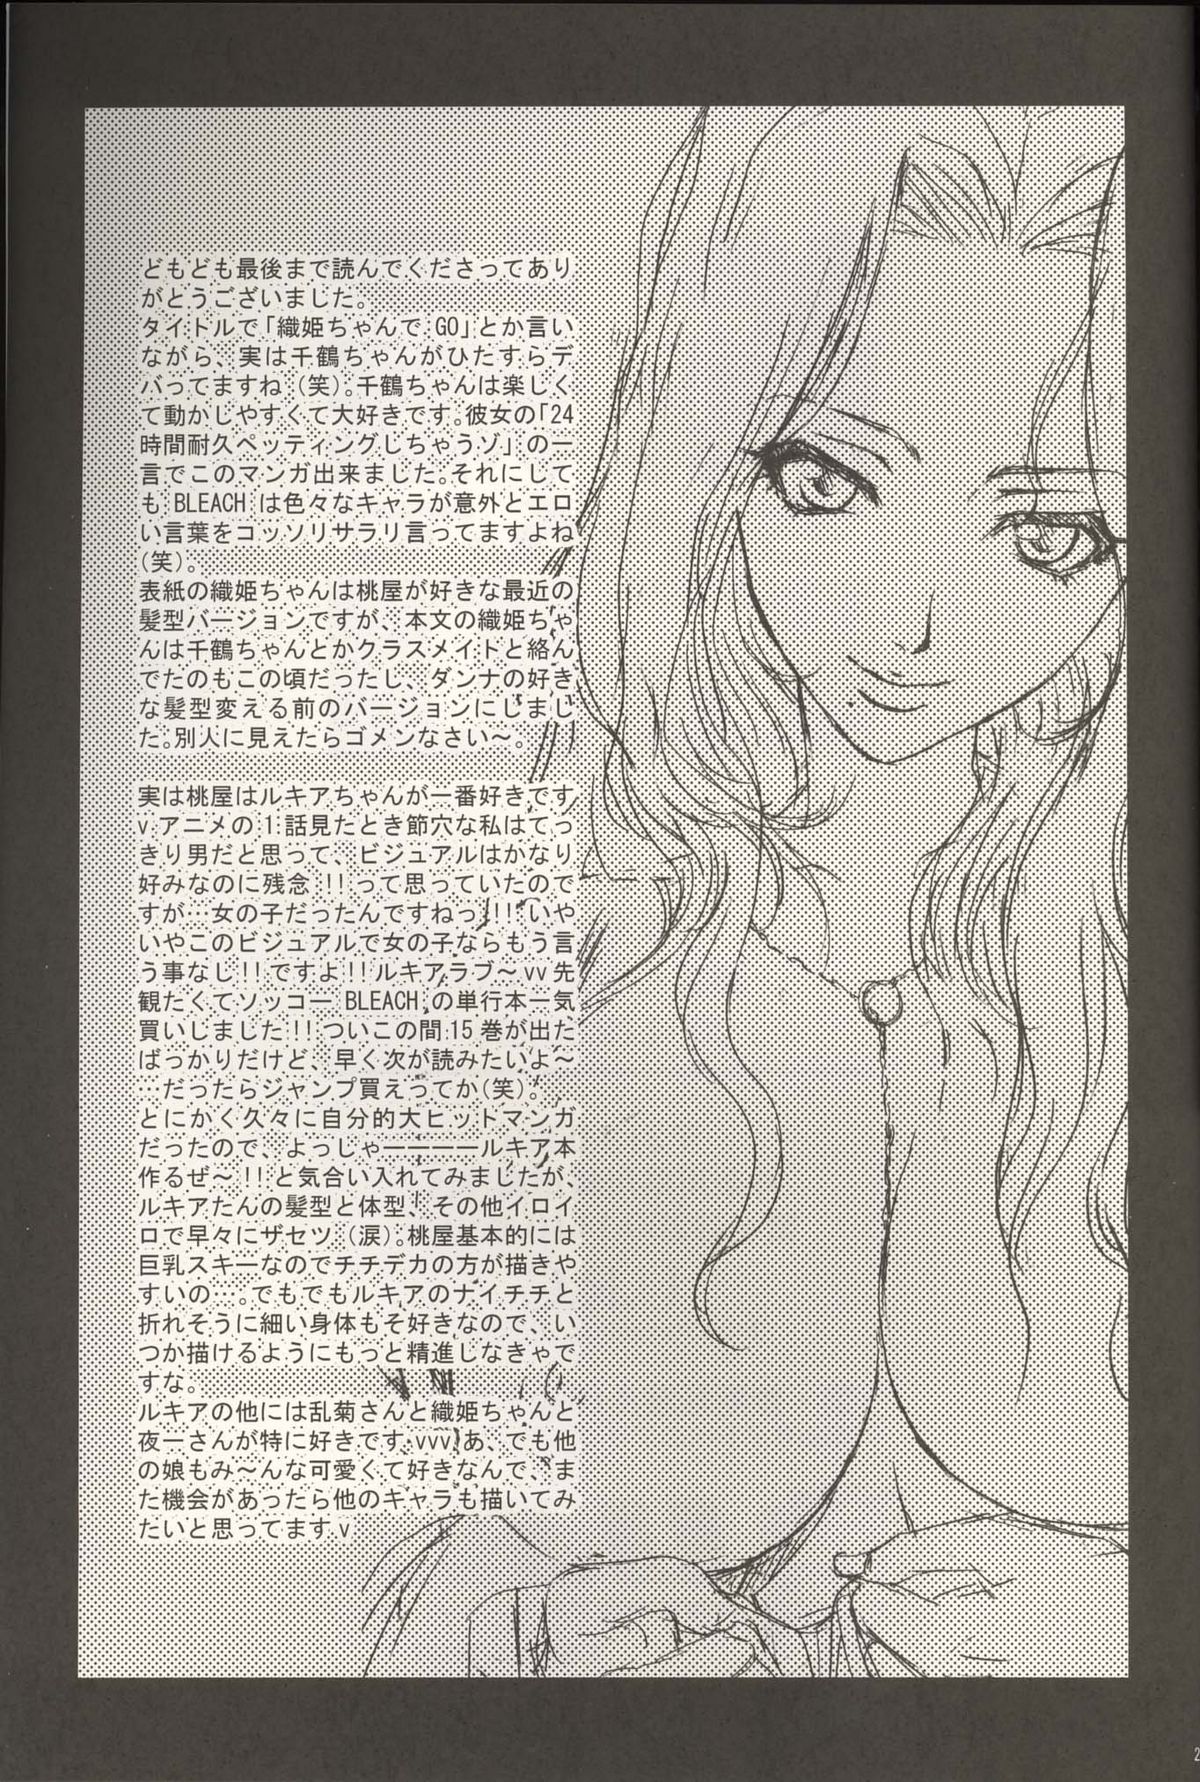 どもども最後まで読んでくださってあり
がとうございました。
タイトルで「織姫ちゃんで GO」とか言い
ながら、実は千鶴ちゃんがひたすらデ
バってますね（笑）。千鶴ちゃんは楽しく
て動かしやすくて大好きです。彼女の「24
時間耐久ペッティングしちゃうゾ」の一
言でこのマンガ出来ました。それにして
も BLEACH は色々なキャラが意外とエロ
い言葉をコッソリサラリ言ってますよね
（笑）。
表紙の織姫ちゃんは桃屋が好きな最近の
髪型バージョンですが、本文の織姫ちゃ
んは千鶴ちゃんとかクラスメイトと絡ん
でたのもこの頃だったし、ダンナの好き
な髪型変える前のバージョンにしまし
た。別人に見えたらゴメンなさい～。
実は桃屋はルキアちゃんが一番好きです
v アニメの 1 話見たとき節穴な私はてっ
きり男だと思って、ビジュアルはかなり
好みなのに残念!!って思っていたので
すが…女の子だったんですねっ!!!いや
いやこのビジュアルで女の子ならもう言
う事なし!!ですよ!!ルキアラブ～vv 先
観たくてソッコー BLEACH の単行本一気
買いしました!!ついこの間 15 巻が出た
ばっかりだけど、早く次が読みたいよ～
…だったらジャンプ買えってか(笑)。
とにかく久々に自分的大ヒットマンガ
だったので、よっしゃ――――ルキア本
作るぜ～!!と気合い入れてみましたが、
ルキアたんの髪型と体型、その他イロイ
ロで早々にザセツ（涙）。桃屋基本的には
巨乳スキーなのでチチデカの方が描きや
すいの…。でもでもルキアのナイチチと
折れそうに細い身体もそ好きなので、い
つか描けるようにもっと精進しなきゃで
すな。
ルキアの他には乱菊さんと織姫ちゃんと
夜一さんが特に好きです vvv あ、でも他
の娘もみ～んな可愛くて好きなんで、ま
た機会があったら他のキャラも描いてみ
たいと思ってます v
2